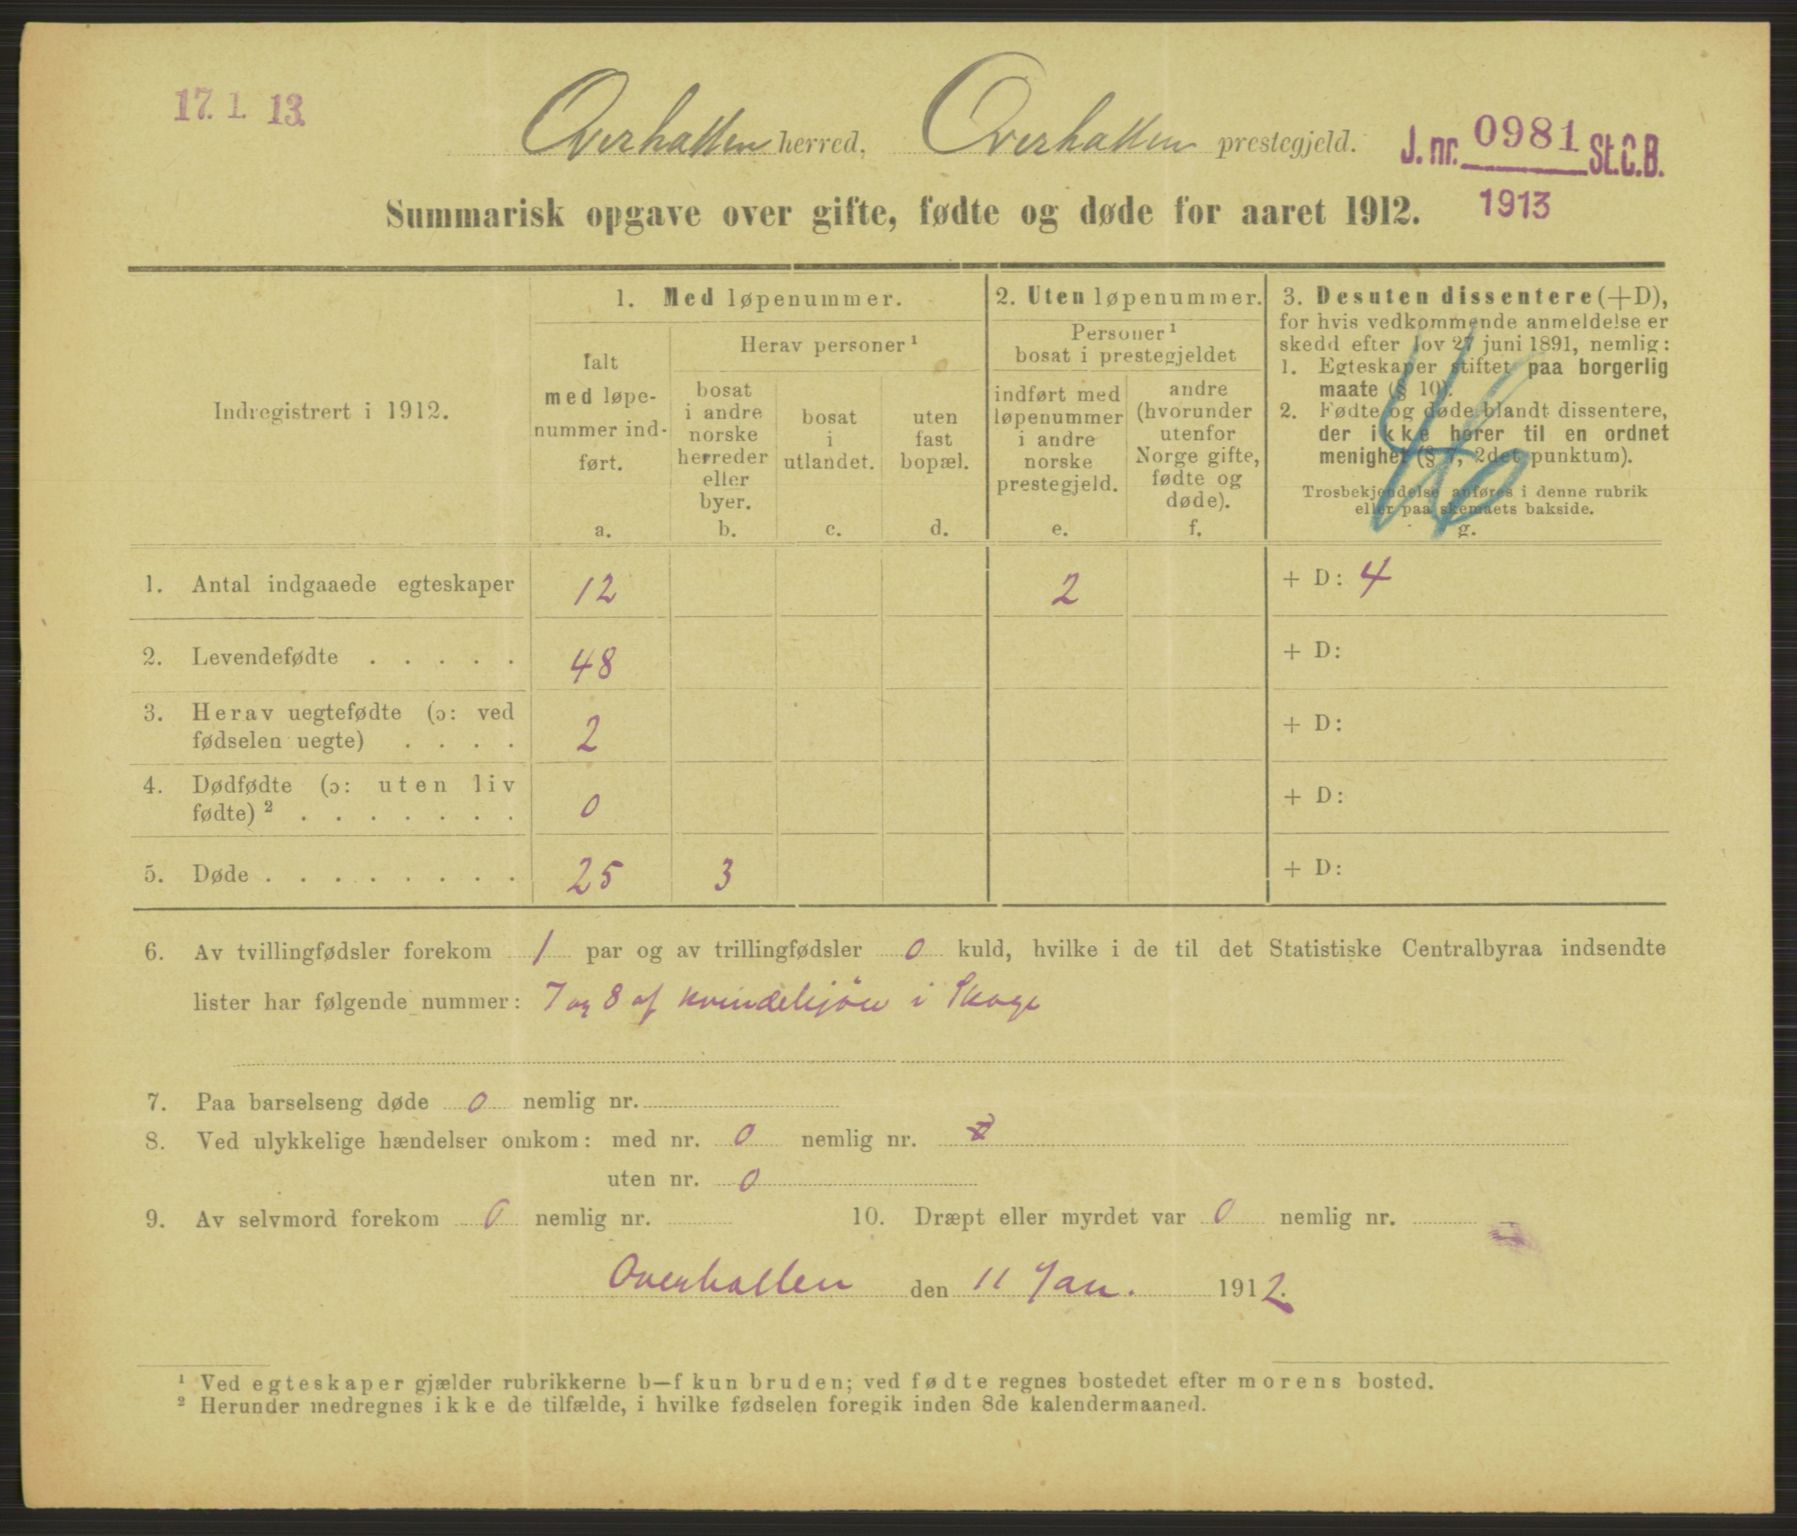 17. 1. 13.
Overhallen herred, Overhallen prestegjeld.
J. nr. 0981 St. C. B.
1913
Summarisk opgave over gifte, fødte og døde for aaret 1912.
Indregistrert i 1912.
1. Med løpenummer.
Ialt
med løpe-
nummer ind-
ført.
a.
Herav personer ¹
bosat
i andre
norske
herreder
eller
byer.
b.
bosat
i
utlandet.
c.
uten
fast
bopæl.
d.
2. Uten løpenummer.
Personer ¹
bosat i prestegjeldet
indført med
løpenummer
i andre
norske
prestegjeld.
e.
andre
(hvorunder
utenfor
Norge gifte,
fødte og
døde).
f.
3. Desuten dissentere (+D),
for hvis vedkommende anmeldelse er
skedd efter lov 27 juni 1891, nemlig:
1. Egteskaper stiftet paa borgerlig
maate (§ 10).
2. Fødte og døde blandt dissentere,
der ikke hører til en ordnet
menighet (§ , 2det punktum).
Trosbekjendelse anføres i denne rubrik
eller paa skemaets bakside.
g.
1. Antal indgaaede egteskaper 12 2 + D: 4
2. Levendefødte . . . . . 48 + D:
3. Herav uegtefødte (ɔ: ved
fødselen uegte) . . . . 2 + D:
4. Dødfødte (ɔ: uten liv
fødte) ² . . . . . . . 0 + D:
5. Døde . . . . . . . . 25 3 + D:
6. Av tvillingfødsler forekom 1 par og av trillingfødsler 0 kuld, hvilke i de til det Statistiske Centralbyraa indsendte
lister har følgende nummer: 7 og 8 af kvindekjön i Skage
7. Paa barselseng døde 0 nemlig nr.
8. Ved ulykkelige hændelser omkom: med nr. 0 nemlig nr.
uten nr. 0
9. Av selvmord forekom 0 nemlig nr. 10. Dræpt eller myrdet var 0 nemlig nr.
Overhallen den 11 Jan. 1912.
¹ Ved egteskaper gjælder rubrikkerne b—f kun bruden; ved fødte regnes bostedet efter morens bosted.
² Herunder medregnes ikke de tilfælde, i hvilke fødselen foregik inden 8de kalendermaaned.